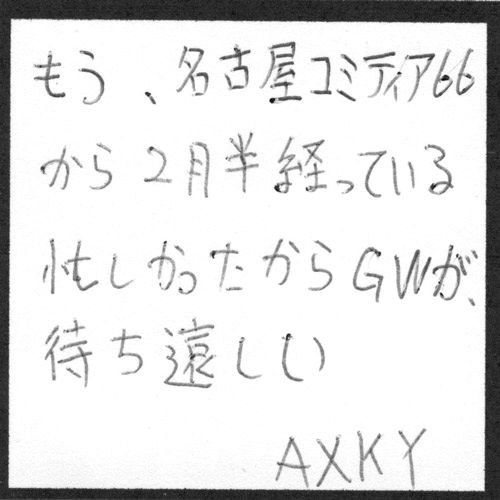 もう、名古屋コミティア66
から2月半経っている
忙しかったからGWが、
待ち遠しい
AXKY